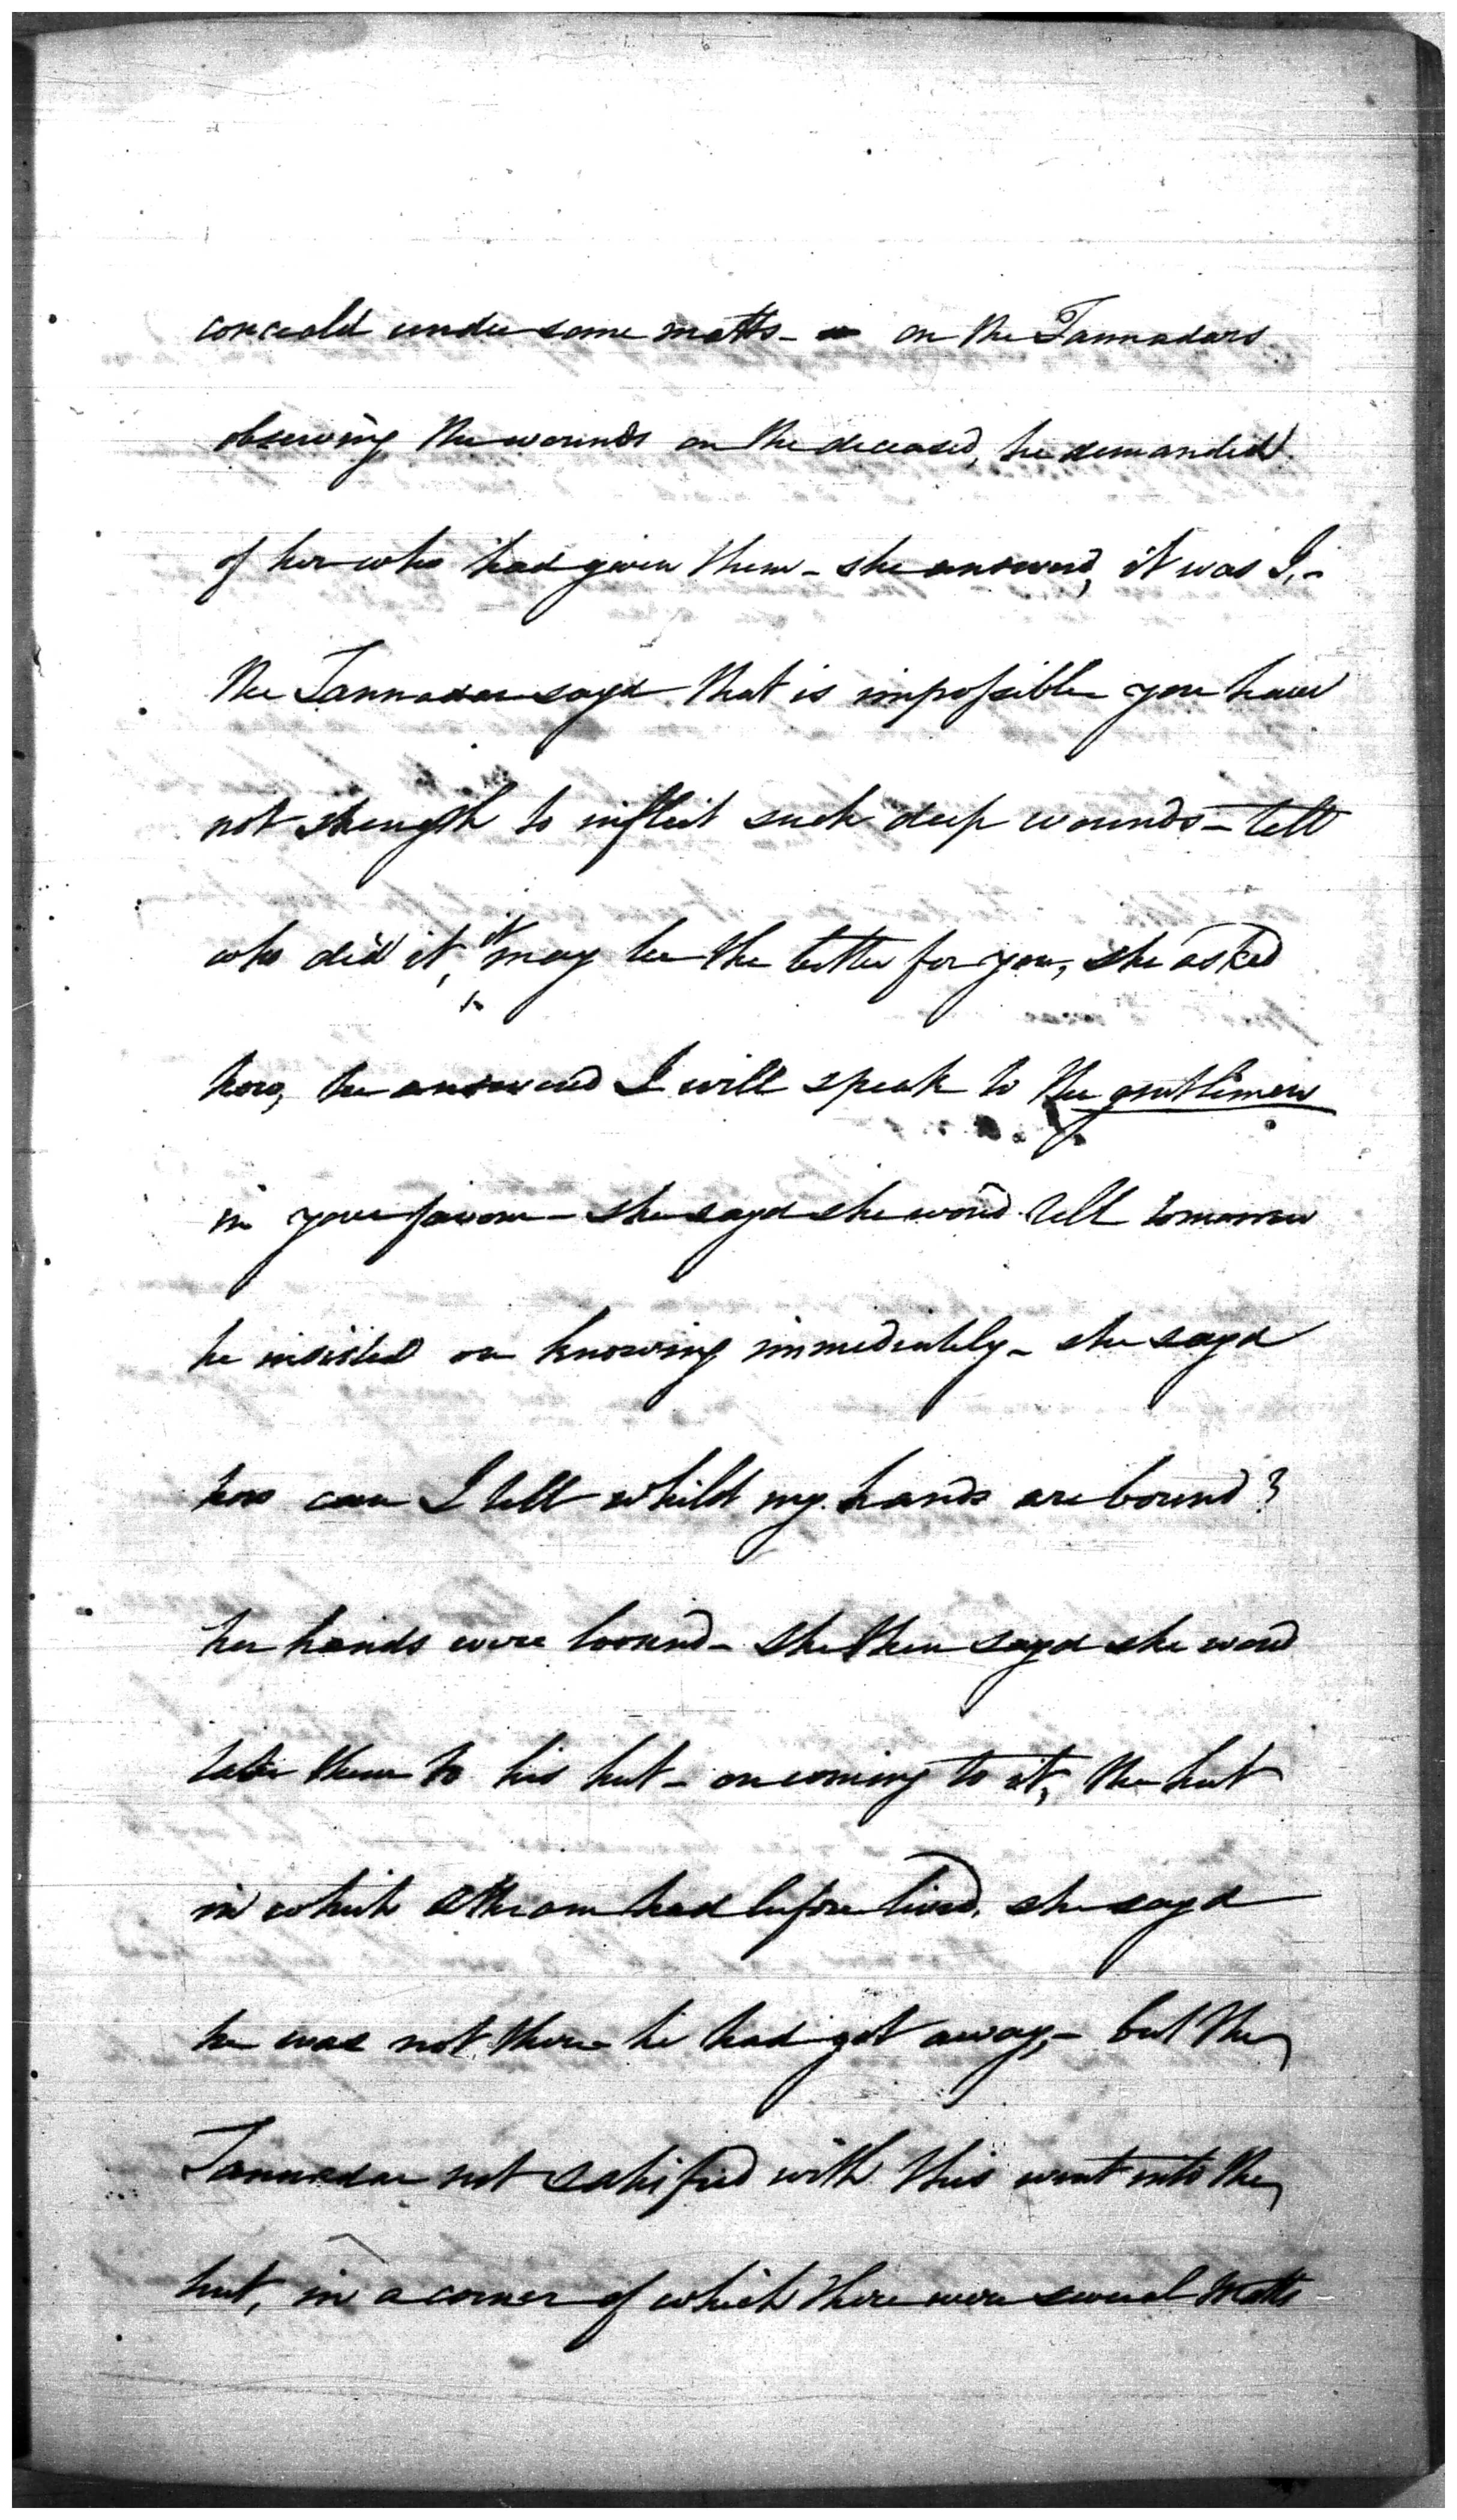 conceald under some matts - on the Tannadars
observing the wounds on the deceased, he demanded
of her who had given them - she answered, it was I, -
the Tannadar sayd that is impossible you have
not strength to inflict such deep wounds - tell
who did it, it may be the better for you, she asked
how, he answered I will speak to the gentlemen
in your favour - she sayd she woud tell tomorrow
he insisted on knowing immediately - she sayd
how can I tell whilst my hands are bound?
her hands were loosend - she then sayd she woud
take them to his hut - on coming to it, the hut
in which had before lived, she sayd
he was not there he had got away, - but the
Tannadar not satisfied with this went into the
hut, in a corner of which there were several matts